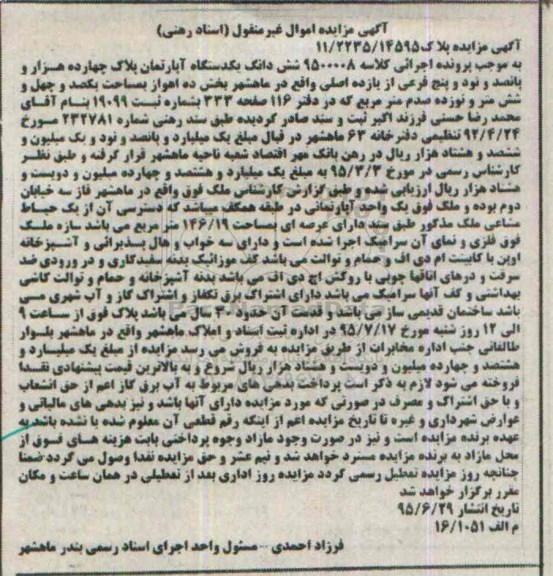 آگهی مزایده اموال غیرمنقول (اسناد رهنی)
آگهی مزایده پلاک ۱۱/۲۲۳۵/۱۴۵۹۵
به موجب پرونده اجرائی کلاسه ۹۵۰۰۰۰۸ شش دانگ یکدستگاه آپارتمان پلاک چهارده هـزار و
پانصد و نود و پنج فرعی از یازده اصلی واقع در ماهشهر بخش ده اهواز بمساحت یکصد و چهل و
شش متر و نوزده صدم متر مربع که در دفتر ۱۱۶ صفحه ۳۳۳ بشماره ثبـت ۱۹۰۹۹ بنـام آقـای
محمد رضا حسنی فرزند اکبر ثبت و سند صادر گردیده طبق سند رهنی شماره ۲۳۲۷۸۱ مـورخ
۹۲/۴/۲۴ تنظیمی دفترخانه ۶۳ ماهشهر در قبال مبلغ یک میلیارد و پانصد و نود و یک میلیون و
ششصد و هشتاد هزار ریال در رهن بانک مهر اقتصاد شعبه ناحیه ماهشهر قرار گرفته و طبق نظـر
کارشناس رسمی در مورخ ۹۵/۳/۳ به مبلغ یک میلیارد و هشتصد و چهارده میلیون و دویست و
هشتاد هزار ریال ارزیابی شده و طبق گزارش کارشناس ملک فوق واقع در ماهشهر فاز سه خیابان
دوم بوده و ملک فوق یک واحد آپارتمانی در طبقه همکف میباشد که دسترسی آن از یک حیـاط
مشاعی ملک مذکور طبق سند دارای عرصه ای بمساحت ۱۴۶/۱۹ متر مربع می باشد سازه ملـک
فوق فلزی و نمای آن سرامیک اجرا شده است و دارای سه خواب و هال پـذیرائی و آشـپزخانه
اوپن با کابینت ام دی اف و حمام و توالت می باشد کف موزائیک بدنه سفیدکاری و در ورودی ضد
سرقت و دربهای اتاقها چوبی با روکش اچ دی اف می باشد بدنه آشپزخانه و حمام و توالت کاشی
بهداشتی و کف آنها سرامیک می باشد دارای اشتراک برق تکفاز و اشتراک گاز و آب شهری مـی
باشد ساختمان قدیمی ساز می باشد و قدمت آن حدود ۳۰ سال می باشد پلاک فوق از سـاعت ۹
الی ۱۲ روز شنبه مورخ ۹۵/۷/۱۷ در اداره ثبت اسناد و املاک ماهشهر واقع در ماهشهر بلـوار
طالقانی جنب اداره مخابرات از طریق مزایده به فروش می رسد مزایده از مبلغ یک میلیـارد و
هشتصد و چهارده میلیون و دویست و هشتاد هزار ریال شروع و به بالاترین قیمت پیشنهادی نقـدا
فروخته می شود لازم به ذکر است پرداخت بدهی های مربوط به آب برق گاز اعم از حق انشعاب
و یا حق اشتراک و مصرف در صورتی که مورد مزایده دارای آنها باشد و نیز بدهی های مالیاتی و
عوارض شهرداری و غیره تا تاریخ مزایده اعم از اینکه رقم قطعی آن معلوم شده یا نشده باشد به
عهده برنده مزایده است و نیز در صورت وجود مازاد وجوه پرداختی بابت هزینه هـای فـوق از
محل مازاد به برنده مزایده مسترد خواهد شد و نیم عشر و حق مزایده نقدا وصول می گردد ضمنا
چنانچه روز مزایده تعطیل رسمی گردد مزایده روز اداری بعد از تعطیلی در همان ساعت و مکان
مقرر برگزار خواهد شد
تاریخ انتشار ۹۵/۶/۲۹
م الف ۱۶/۱۰۵۱
فرزاد احمدی - مسئول واحد اجرای اسناد رسمی بندر ماهشهر